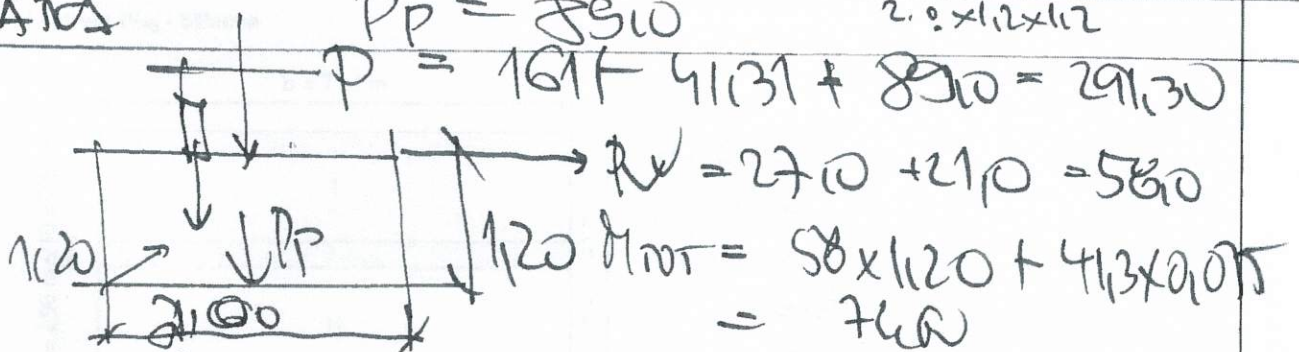 Pp = 89,0
2.0x1,2x1,2
P = 161+ 41,31 + 89,0 = 291,30
= 27,0 +21,0 = 58,0
1,20
Pp
1,20
MTOT = 58x1,20 + 41,3x0,075
= 74,0